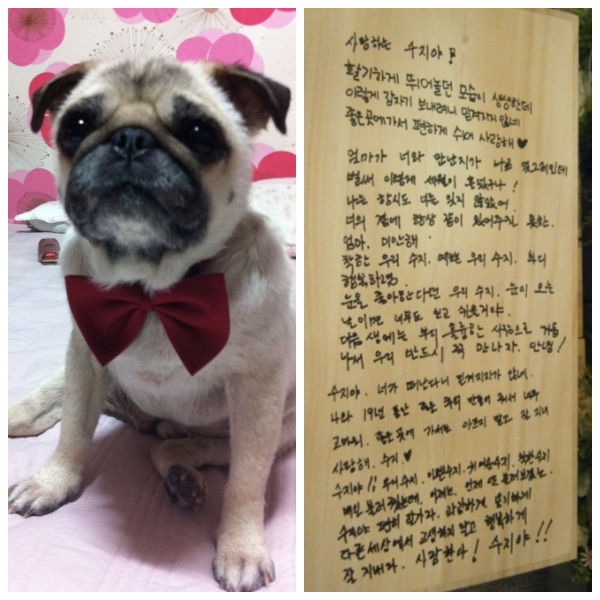 사랑하는 수지야
활기하게 뛰어놀던 모습이 생생한데
이렇게 갑자기 보내려니 믿겨지지 않네
좋은곳에가서 편하게 쉬어 사랑해♥
엄마가 너와 만난지가
벌써 이렇게 세월이
나는 한시도 너를 잊지 않았어.
너의 곁에 항상 같이 있어주질 못한.
엄마. 미안해
착한 우리 수지. 예쁜 우리 수지. 부디
행복하렴.
눈을 좋아한다던 우리 수지. 눈이 오는
날이면 너무도 보고 싶을거야.
다음 생에는 부디 훌륭한 사람으로 거듭
나서 우리 반드시 꼭 만나자. 안녕!
수지야. 네가 떠난다니 믿겨지지가 않네.
나와 19년 동안 좋은 추억 만들어 줘서 너무
고마워. 좋은 곳에 가서는 아프지 말고 잘 지내
사랑해. 수지♥
수지야!! 우리수지. 이쁜수지. 귀여운수지. 착한수지
매일 불러줬는데, 이제는 언제 또 불러보겠노.
수지야 편히 잘가라.
다른세상에서 고생하지 말고 행복하게
잘 지내라. 사랑한다! 수지야!!